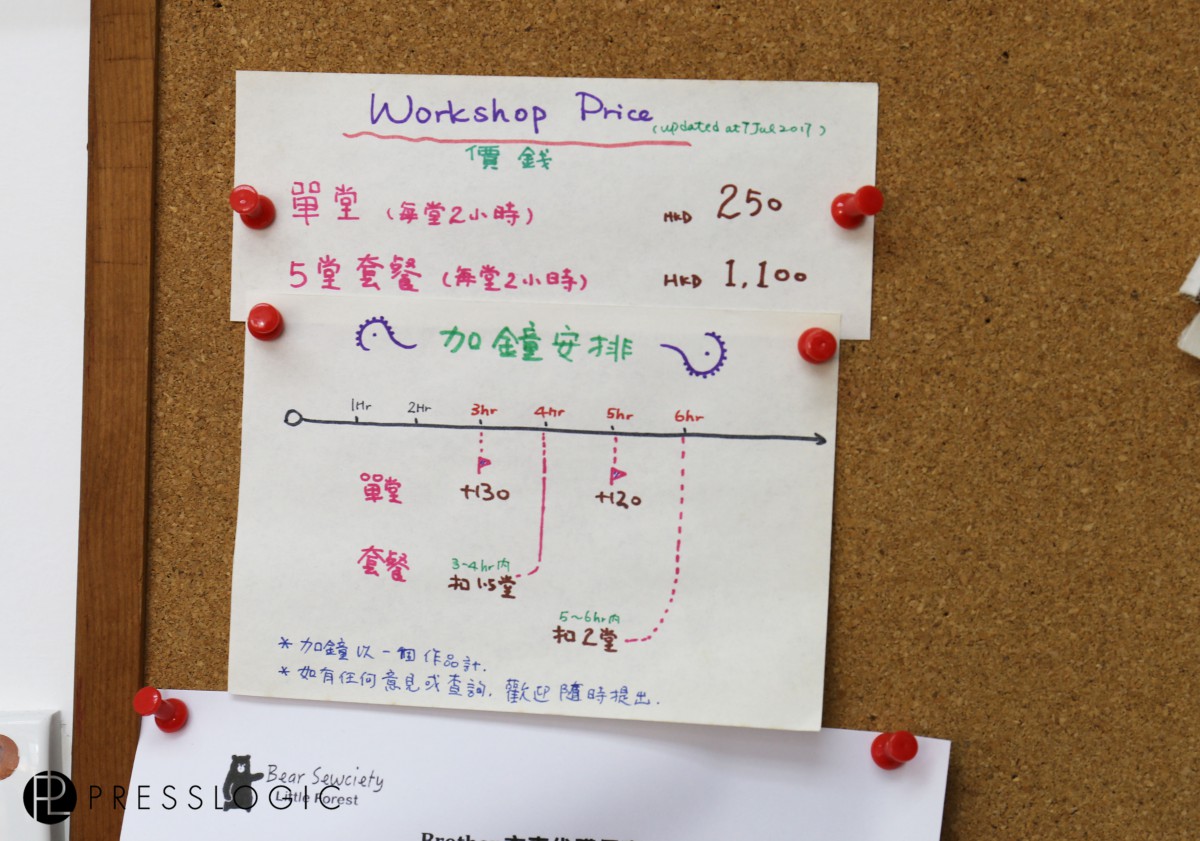 Workshop Price (updated at 7 Jul 2017)
價錢
單堂 (每堂2小時) HKD 250
5堂套餐 (每堂2小時) HKD 1,100
加鐘安排
1Hr 2Hr 3hr 4Hr 5hr 6hr
單堂 +130 +120
套餐 3-4hr內
扣1.5堂
5~6hr內
扣2堂
*加鐘以一個作品計.
*如有任何意見或查詢, 歡迎隨時提出.
Bear Sewciety
Little Forest
PRESSLOGIC
Brother